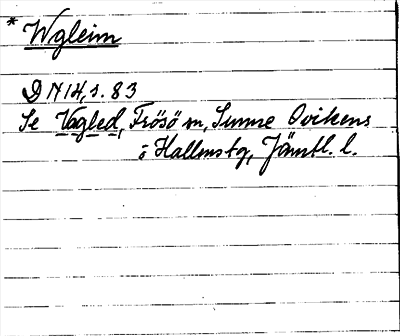 * Wgleim
DN 14, s. 83
Se Vagled, Frösö sn, Sunne Ovikens
o Hallens tg, Jämtl. l.